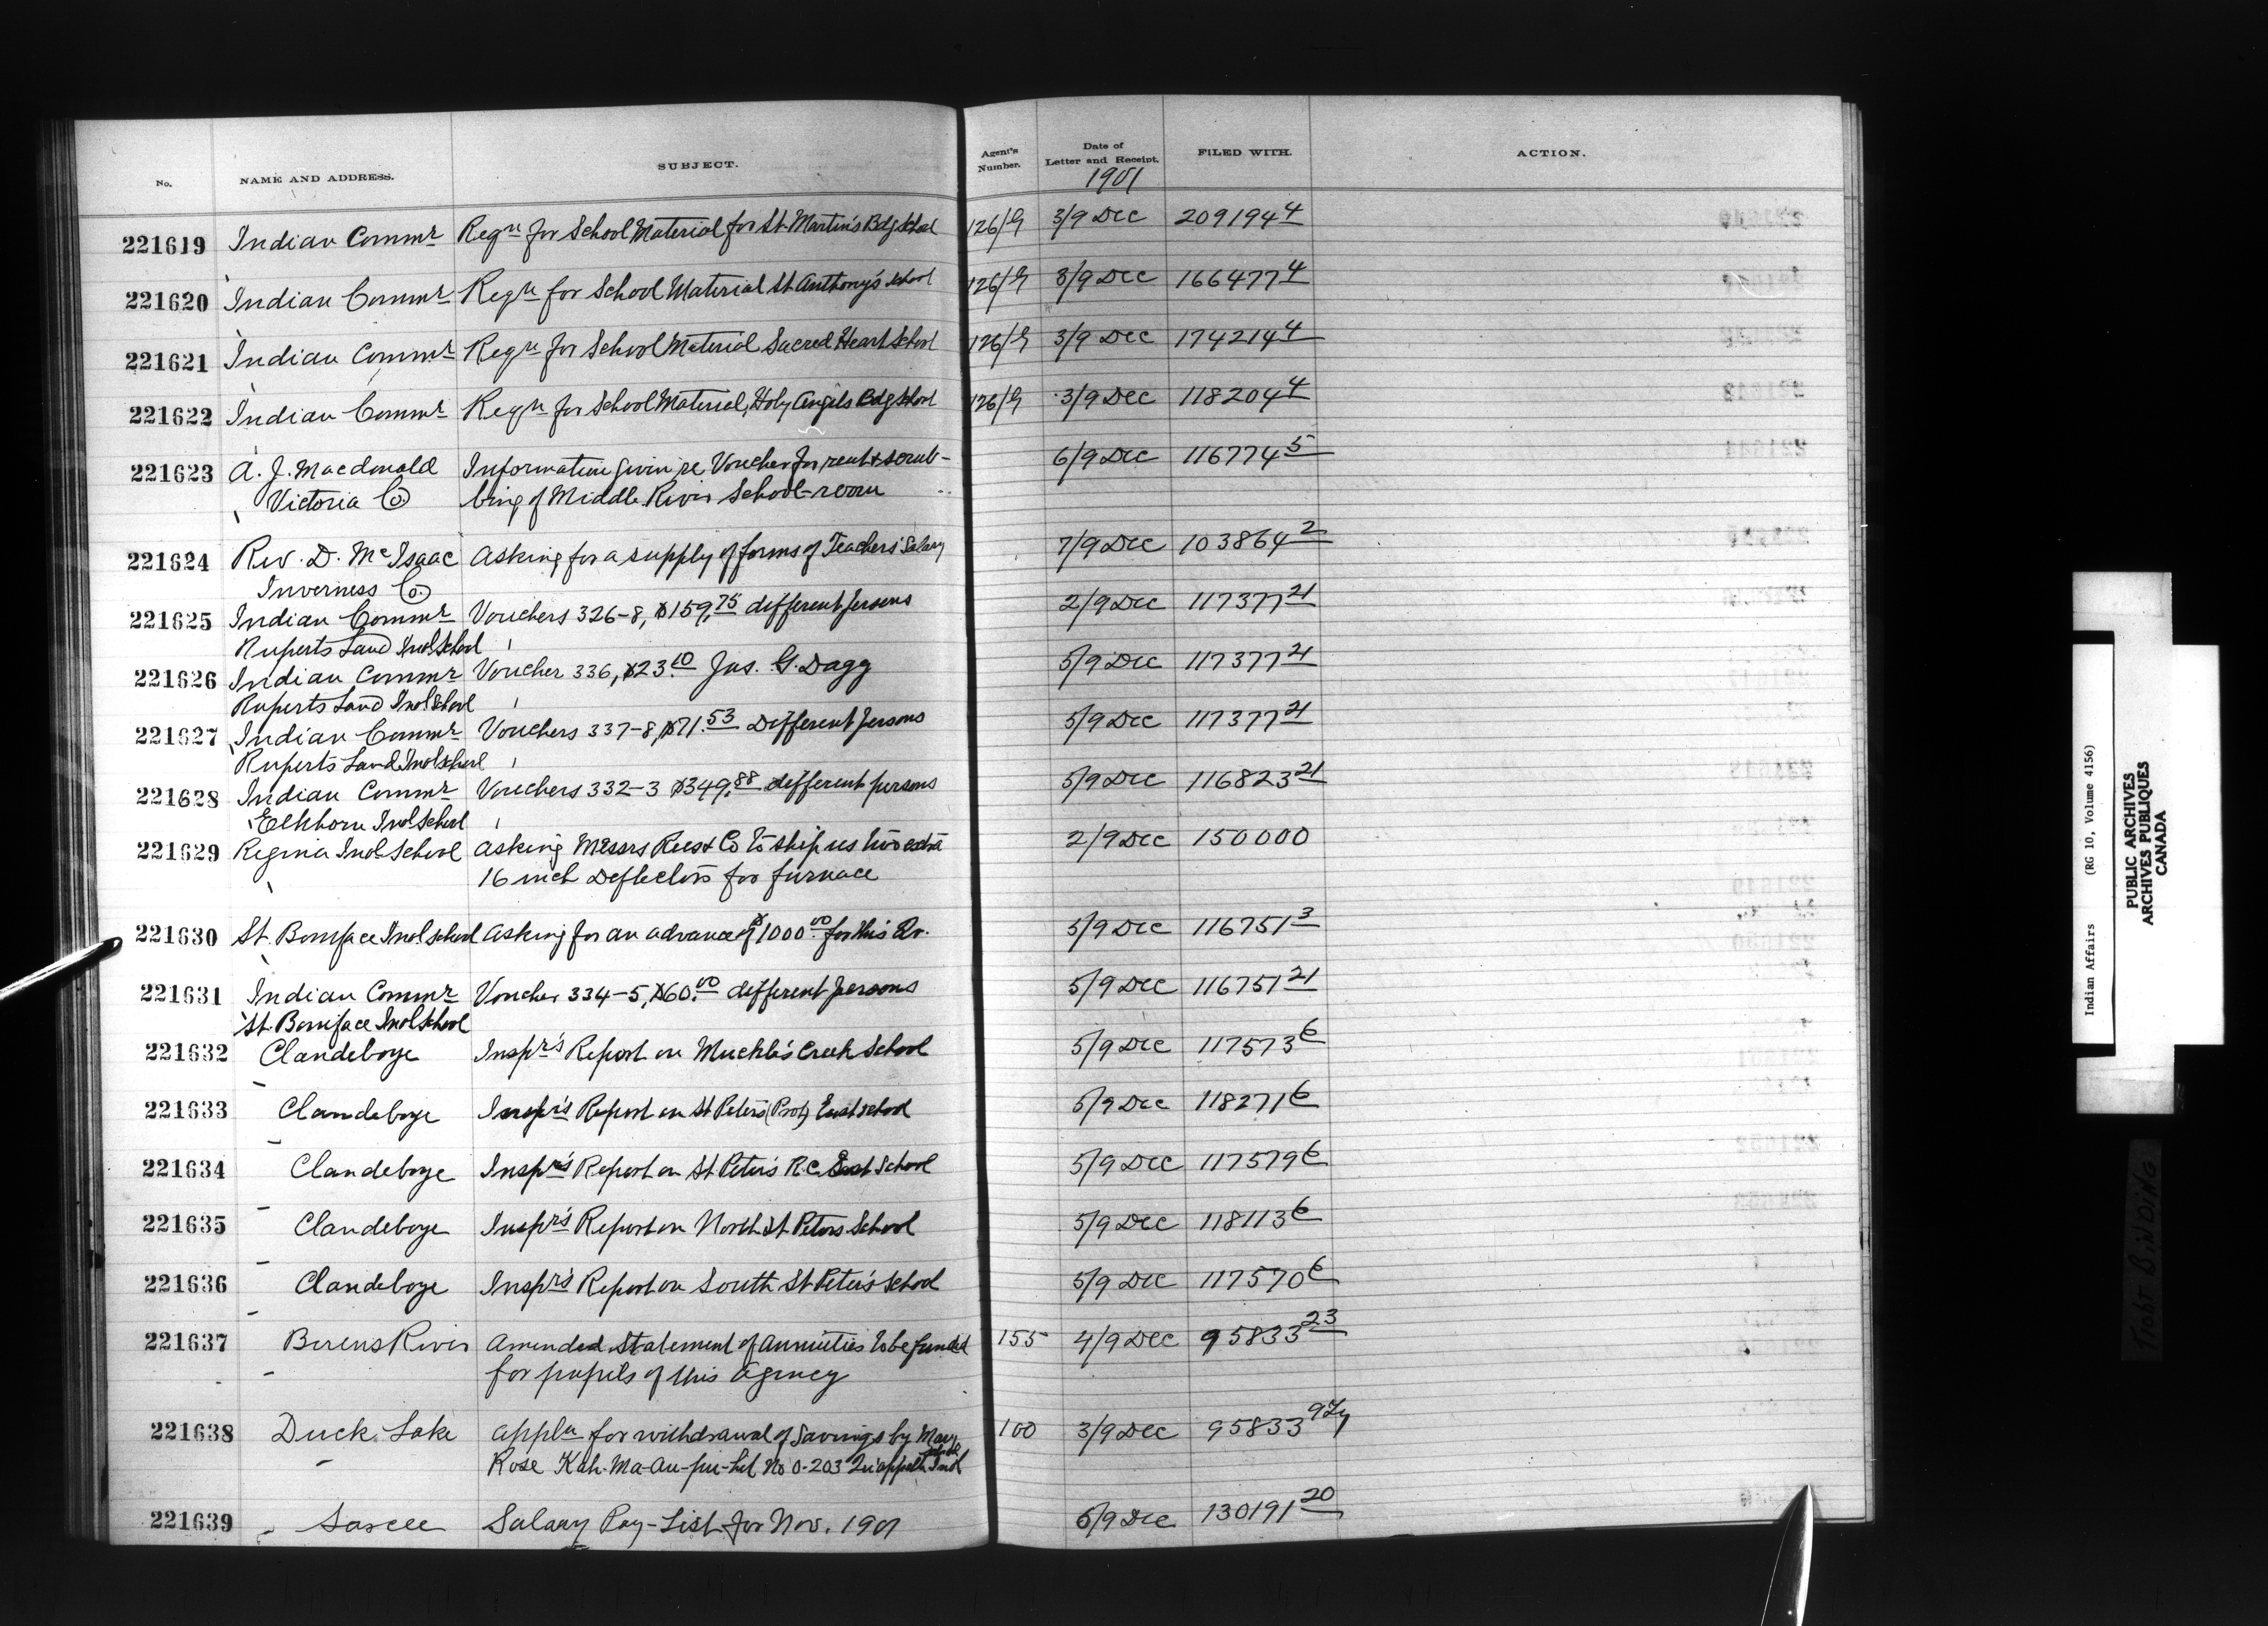 No. NAME AND ADDRESS. SUBJECT. Agent's Number. Date of Letter and Receipt. FILED WITH. ACTION.
1901
221619 Indian Commr Reqn for School Material for St. Martin's Bdg School 126/G 3/9 Dec 209194 4
221620 Indian Commr Reqn for School Material St Anthony's School 126/G 3/9 Dec 166477 4
221621 Indian Commr Reqn for School Material Sacred Heart School 126/G 3/9 Dec 174214 4
221622 Indian Commr Reqn for School Material, Holy Angels Bdg School 126/G 3/9 Dec 118204 4
221623 A. J. Macdonald Information given re Voucher for rent & scrub- 6/9 Dec 116774 5
Victoria Co bing of Middle River School-room
221624 Rev. D. McIsaac Asking for a supply of forms of Teachers' Salary 7/9 Dec 103864 2
Inverness Co.
221625 Indian Commr Vouchers 326-8, $159.75 different persons 2/9 Dec 117377 21
Ruperts Land Indl School
221626 Indian Commr Voucher 336, $23.10 Jas. G. Dagg 5/9 Dec 117377 21
Ruperts Land Indl School
221627 Indian Commr Vouchers 337-8, $71.53 Different persons 5/9 Dec 117377 21
Ruperts Land Indl School
221628 Indian Commr Vouchers 332-3 $349.88 different persons 5/9 Dec 116823 21
Elkhorn Indl School
221629 Regina Indl School Asking Messrs & Co to ship us two extra 2/9 Dec 150000
16 inch Deflectors for furnace
221630 St. Boniface Indl School Asking for an advance of $1000.00 for this Qr. 5/9 Dec 116751 3
221631 Indian Commr Voucher 334-5, $60.00 different persons 5/9 Dec 116751 21
St. Boniface Indl School
221632 Clandeboye Inspr's Report on Muckle's Creek School 5/9 Dec 117573 6
221633 Clandeboye Inspr's Report on St Peter's (Prot) East School 5/9 Dec 118271 6
221634 Clandeboye Inspr's Report on St Peter's R.C. East School 5/9 Dec 117579 6
221635 Clandeboye Inspr's Report on North St Peters School 5/9 Dec 118113 6
221636 Clandeboye Inspr's Report on South St Peter's School 5/9 Dec 117570 6
221637 Berens River Amended Statement of Annuities to be funded 155 4/9 Dec 95833 23
for pupils of this Agency
221638 Duck Lake Appln for withdrawal of Savings by Mary 100 3/9 Dec 95833
Rose No 0-203 Qu'appelle Indl School
221639 Sarcee Salary Pay-List for Nov. 1901 6/9 Dec 130191 20
Indian Affairs (RG 10, Volume 4156)
PUBLIC ARCHIVES
ARCHIVES PUBLIQUES
CANADA
TIGHT BINDING